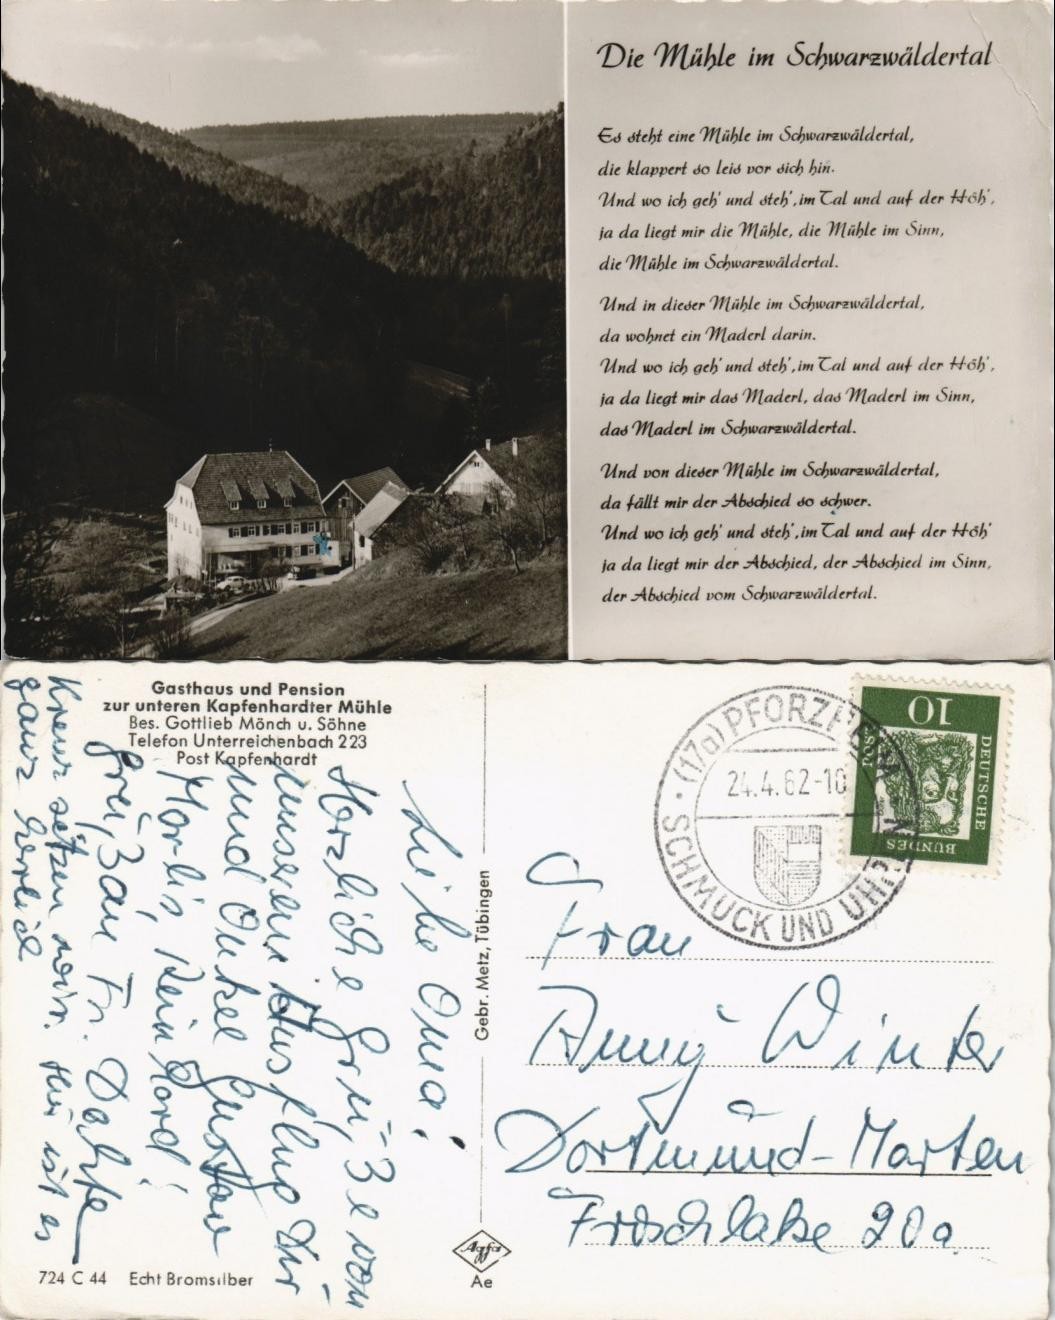 Die Mühle im Schwarzwäldertal
Es steht eine Mühle im Schwarzwäldertal,
die klappert so leis vor sich hin.
Und wo ich geh' und steh', im Tal und auf der Höh',
ja da liegt mir die Mühle, die Mühle im Sinn,
die Mühle im Schwarzwäldertal.
Und in dieser Mühle im Schwarzwäldertal,
da wohnet ein Maderl darin.
Und wo ich geh' und steh', im Tal und auf der Höh',
ja da liegt mir das Maderl, das Maderl im Sinn,
das Maderl im Schwarzwäldertal.
Und von dieser Mühle im Schwarzwäldertal,
da fällt mir der Abschied so schwer.
Und wo ich geh' und steh', im Tal und auf der Höh'
ja da liegt mir der Abschied, der Abschied im Sinn,
der Abschied vom Schwarzwäldertal.
Gasthaus und Pension
zur unteren Kapfenhardter Mühle
Bes. Gottlieb Mönch u. Söhne
Telefon Unterreichenbach 223
Post Kapfenhardt
Liebe Oma!
Herzliche Grüße von
unserem Ausflug Ihr
und Onkel Gustav
Marlis, Reinhard!
Grüßen Fr. Dahte
Kreuz setzen wir. Hier ist es
ganz herrlich
724 C 44 Echt Bromsilber
Gebr. Metz, Tübingen
Agfa
Ae
(17a) PFORZHEIM
24.4.62-10
SCHMUCK UND UHREN
10
DEUTSCHE
BUNDES
POST
Frau
Anny Winter
Dortmund-Marten
Froschlake 20a